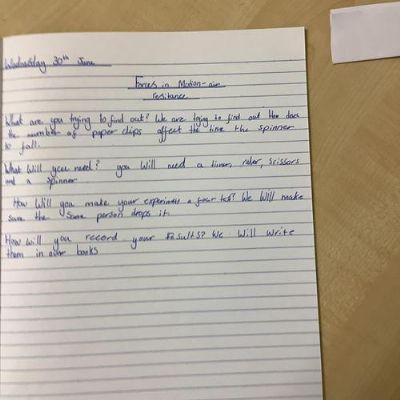 Wednesday 30th June
Forces in Motion - air
resitance
What are you trying to find out? We are trying to find out How does
the number of paper clips affect the time the spinner
to fall.
What will you need? you will need a timer, ruler, scissors
and a spinner
How will you make your experiment a fair test? We Will make
sure the same person drops it.
How will you record your results? We Will write
them in our books